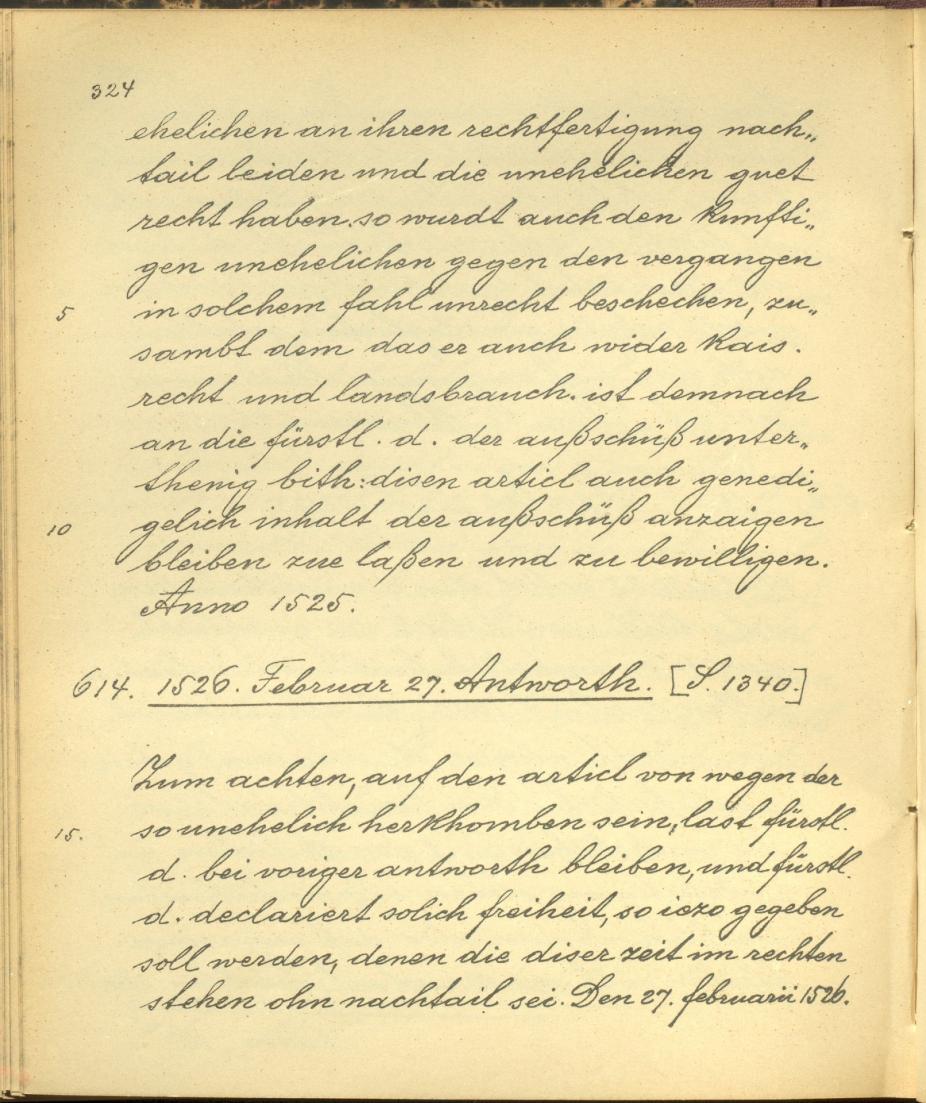 324
ehelichen an ihren rechtfertigung nach„
tail leiden und die unehelichen guet
recht haben. so wurdt auch den kunfti„
gen unehelichen gegen den vergangen
5 in solchem fahl unrecht beschechen, zu„
sambt dem das er auch wider kais.
recht und landsbrauch. ist demnach
an die fürstl. d. der außschüß unter„
thenig bith: disen articl auch genedi„
10 gelich inhalt der außschüß anzaigen
bleiben zue laßen und zu bewilligen.
Anno 1525.
614. 1526. Februar 27. Antworth. [S. 1340.]
Zum achten, auf den articl von wegen der
15. so unehelich herkhomben sein, last fürstl.
d. bei voriger antworth bleiben, und fürstl.
d. declariert solich freiheit, so iezo gegeben
soll werden, denen die diser zeit im rechten
stehen ohn nachtail sei. Den 27. februarii 1526.